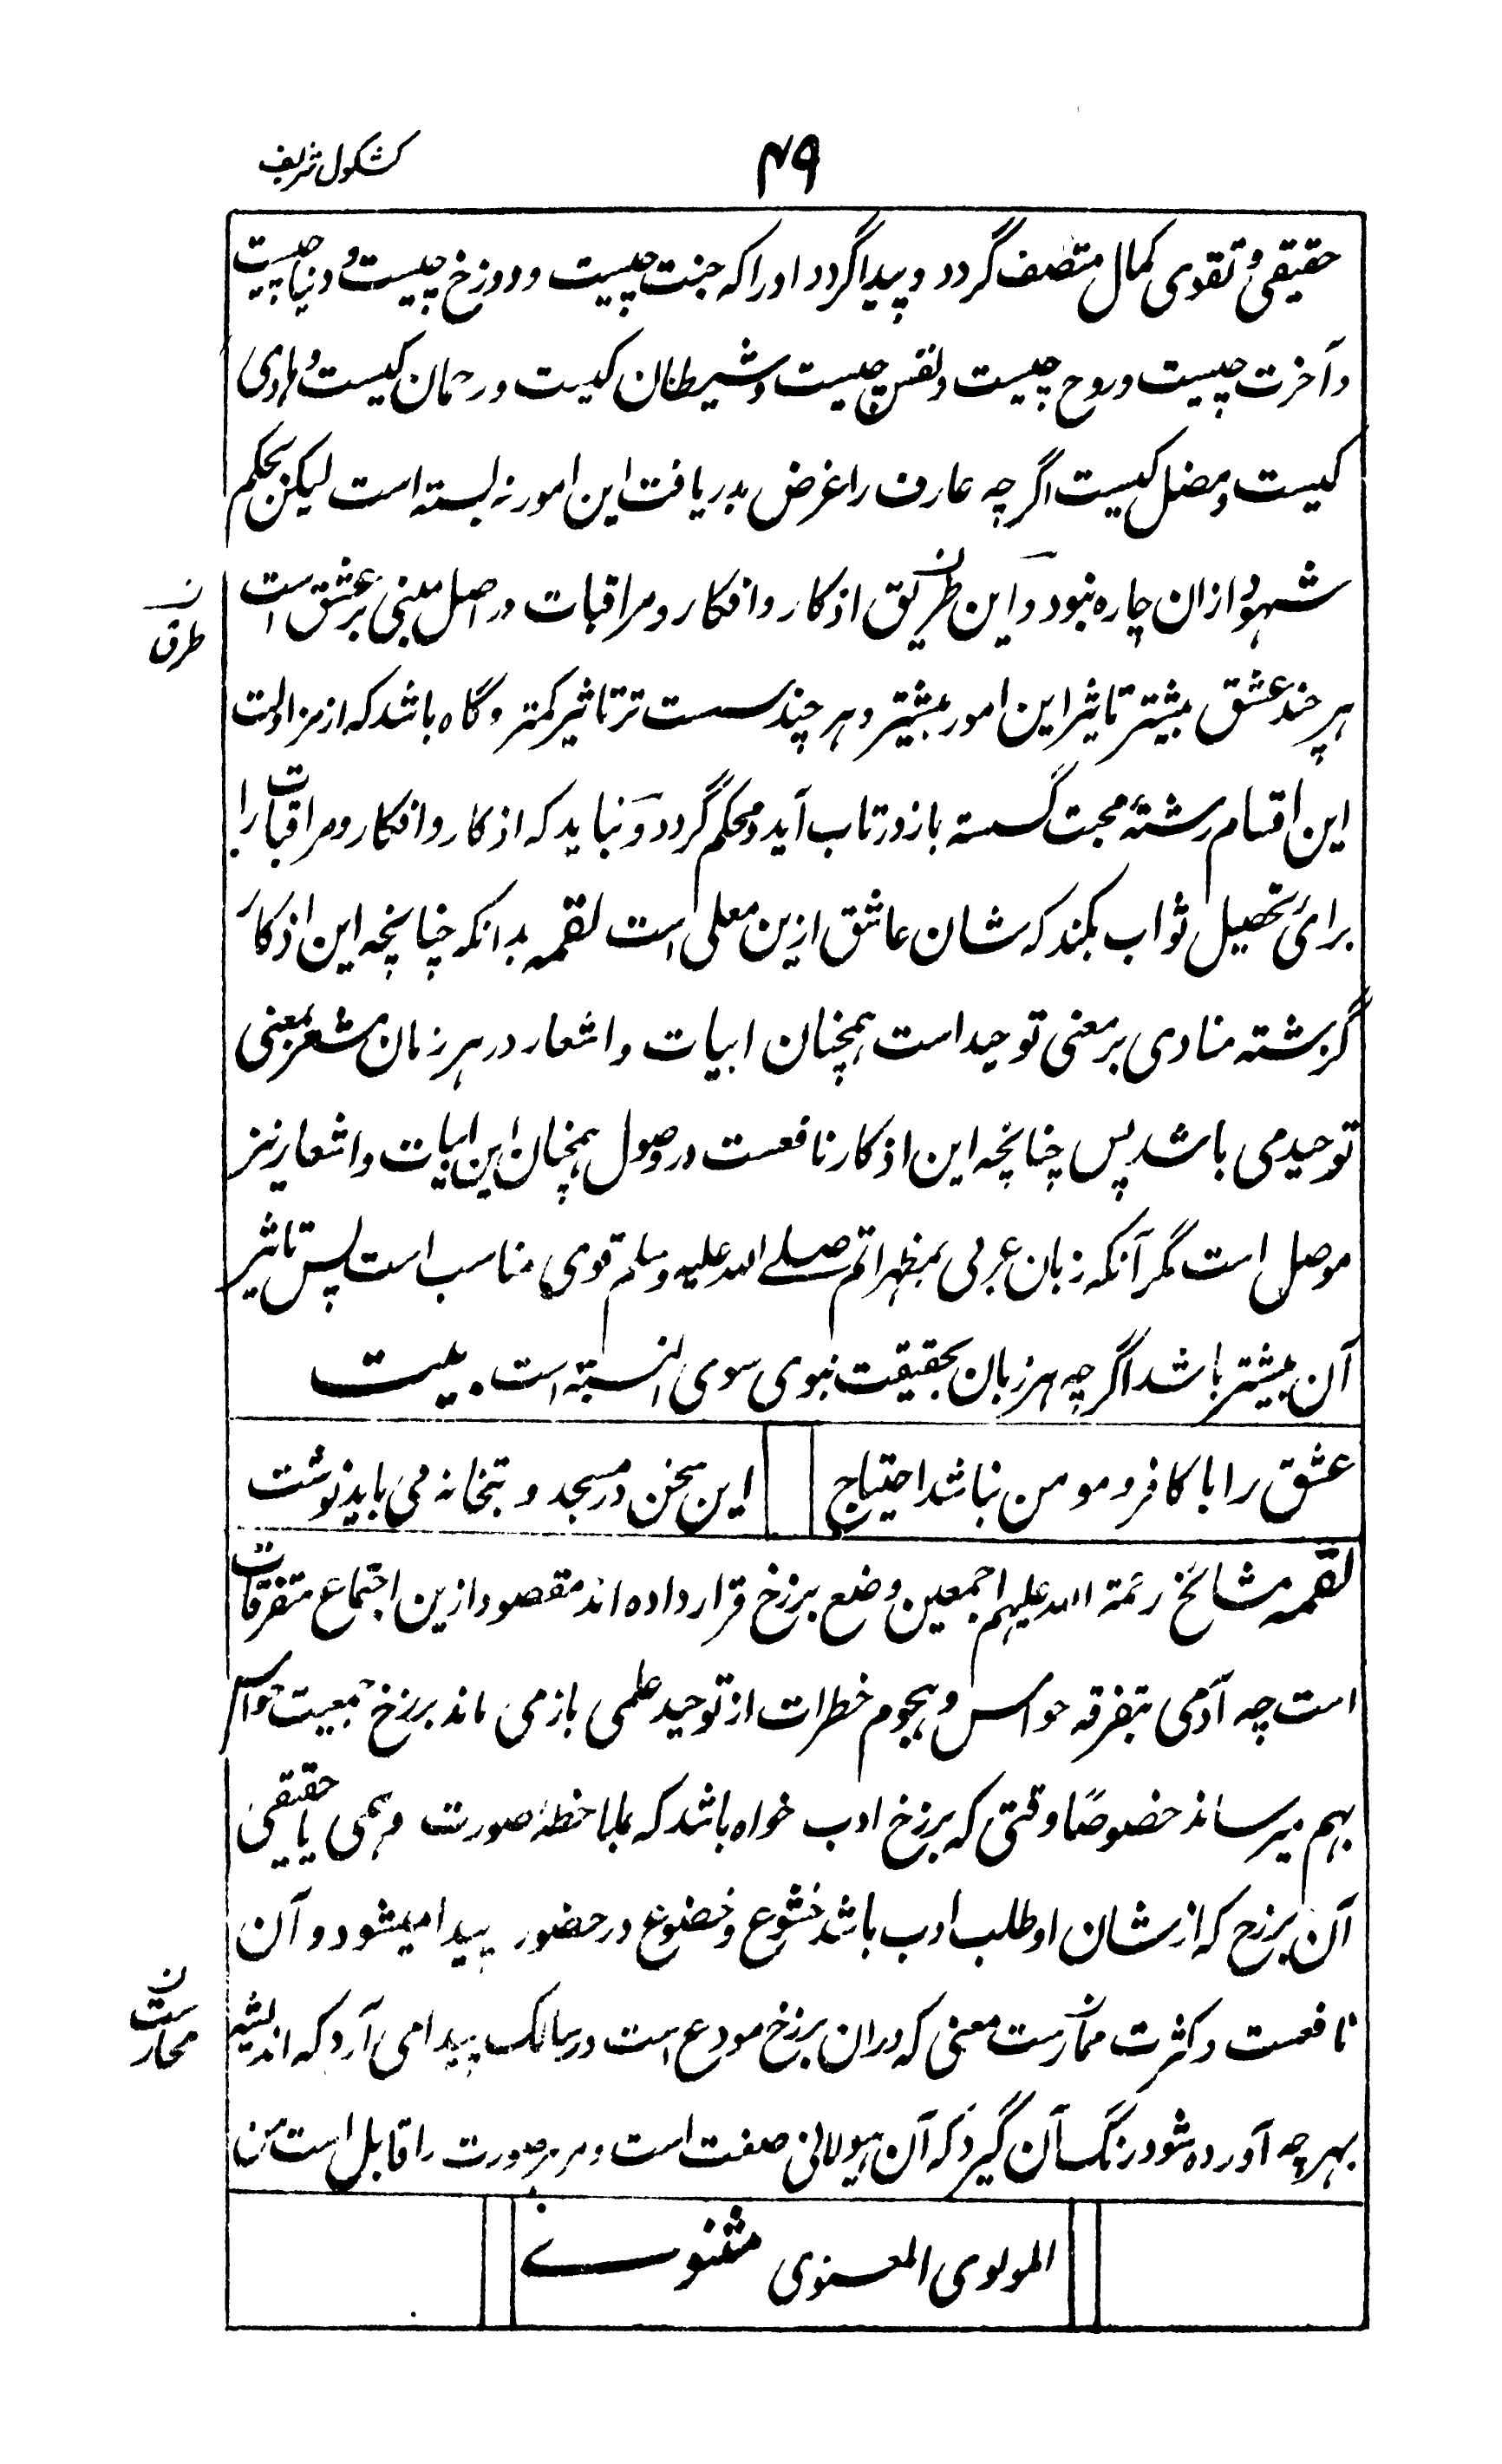 ۴۹
کشکول شریف
حقیقی و تقوی کمال متصف گردد و پیدا گردد اورا که جنت چیست و دوزخ چیست و دنیا چیست
و آخرت چیست و روح چیست و نفس چیست و شیطان کیست و رحمان کیست و هادی
کیست و مضل کیست اگرچه عارف را غرض بدریافت این امور نه بسته است لیکن بحکم
شهود ازان چاره نبود و این طریق اذکار و افکار و مراقبات در اصل مبنی بر عشق است
ن
طرق
هر چند عشق بیشتر تاثیر این امور بیشتر و هر چند سست تر تاثیر کمتر و گاه باشد که از مزاولت
این اقسام رشتهٔ محبت گسسته باز در تاب آید و محکم گردد و نباید که اذکار و افکار و مراقبات را
برای تحصیل ثواب بکند که شان عاشق ازین معلی است لقمه بدانکه چنانچه این اذکار
گزشته منادی بر معنی توحید است همچنان ابیات و اشعار در هر زمان مشعر بمعنی
توحید می باشد پس چنانچه این اذکار نافعست در وصول همچنان این ابیات و اشعار نیز
موصل است مگر آنکه زبان عربی بمظهر اتم صلے الله علیه وسلم قوی مناسب است پس تاثیر
آن بیشتر باشد اگرچه هر زبان بحقیقت نبوی سوی النسبة است . بیت
عشق را با کافر و مومن نباشد احتیاج این سخن در مسجد و بتخانه می باید نوشت
لقمه مشائخ رحمة الله علیهم اجمعین وضع برزخ قرار داده اند مقصود ازین اجتماع متفرقات
است چه آدمی بتفرقه حواس و هجوم خطرات از توحید علمی باز می ماند برزخ جمعیت حواس
بهم میرساند خصوصًا وقتی که برزخ ادب خواه باشد که بملاحظهٔ صورت وهمی یا حقیقی
آن برزخ که از شان او طلب ادب باشد خشوع و خضوع در حضور پیدا میشود و آن
نافعست و کثرت ممارست معنی که دران برزخ مودع است در سالک پیدا می آرد که اندیشه
ن
محارست
بهر چه آورده شود رنگ آن گیرد که آن هیولانی صفت است و هر صورت را قابل است من
المولوی المعنوی مثنوے